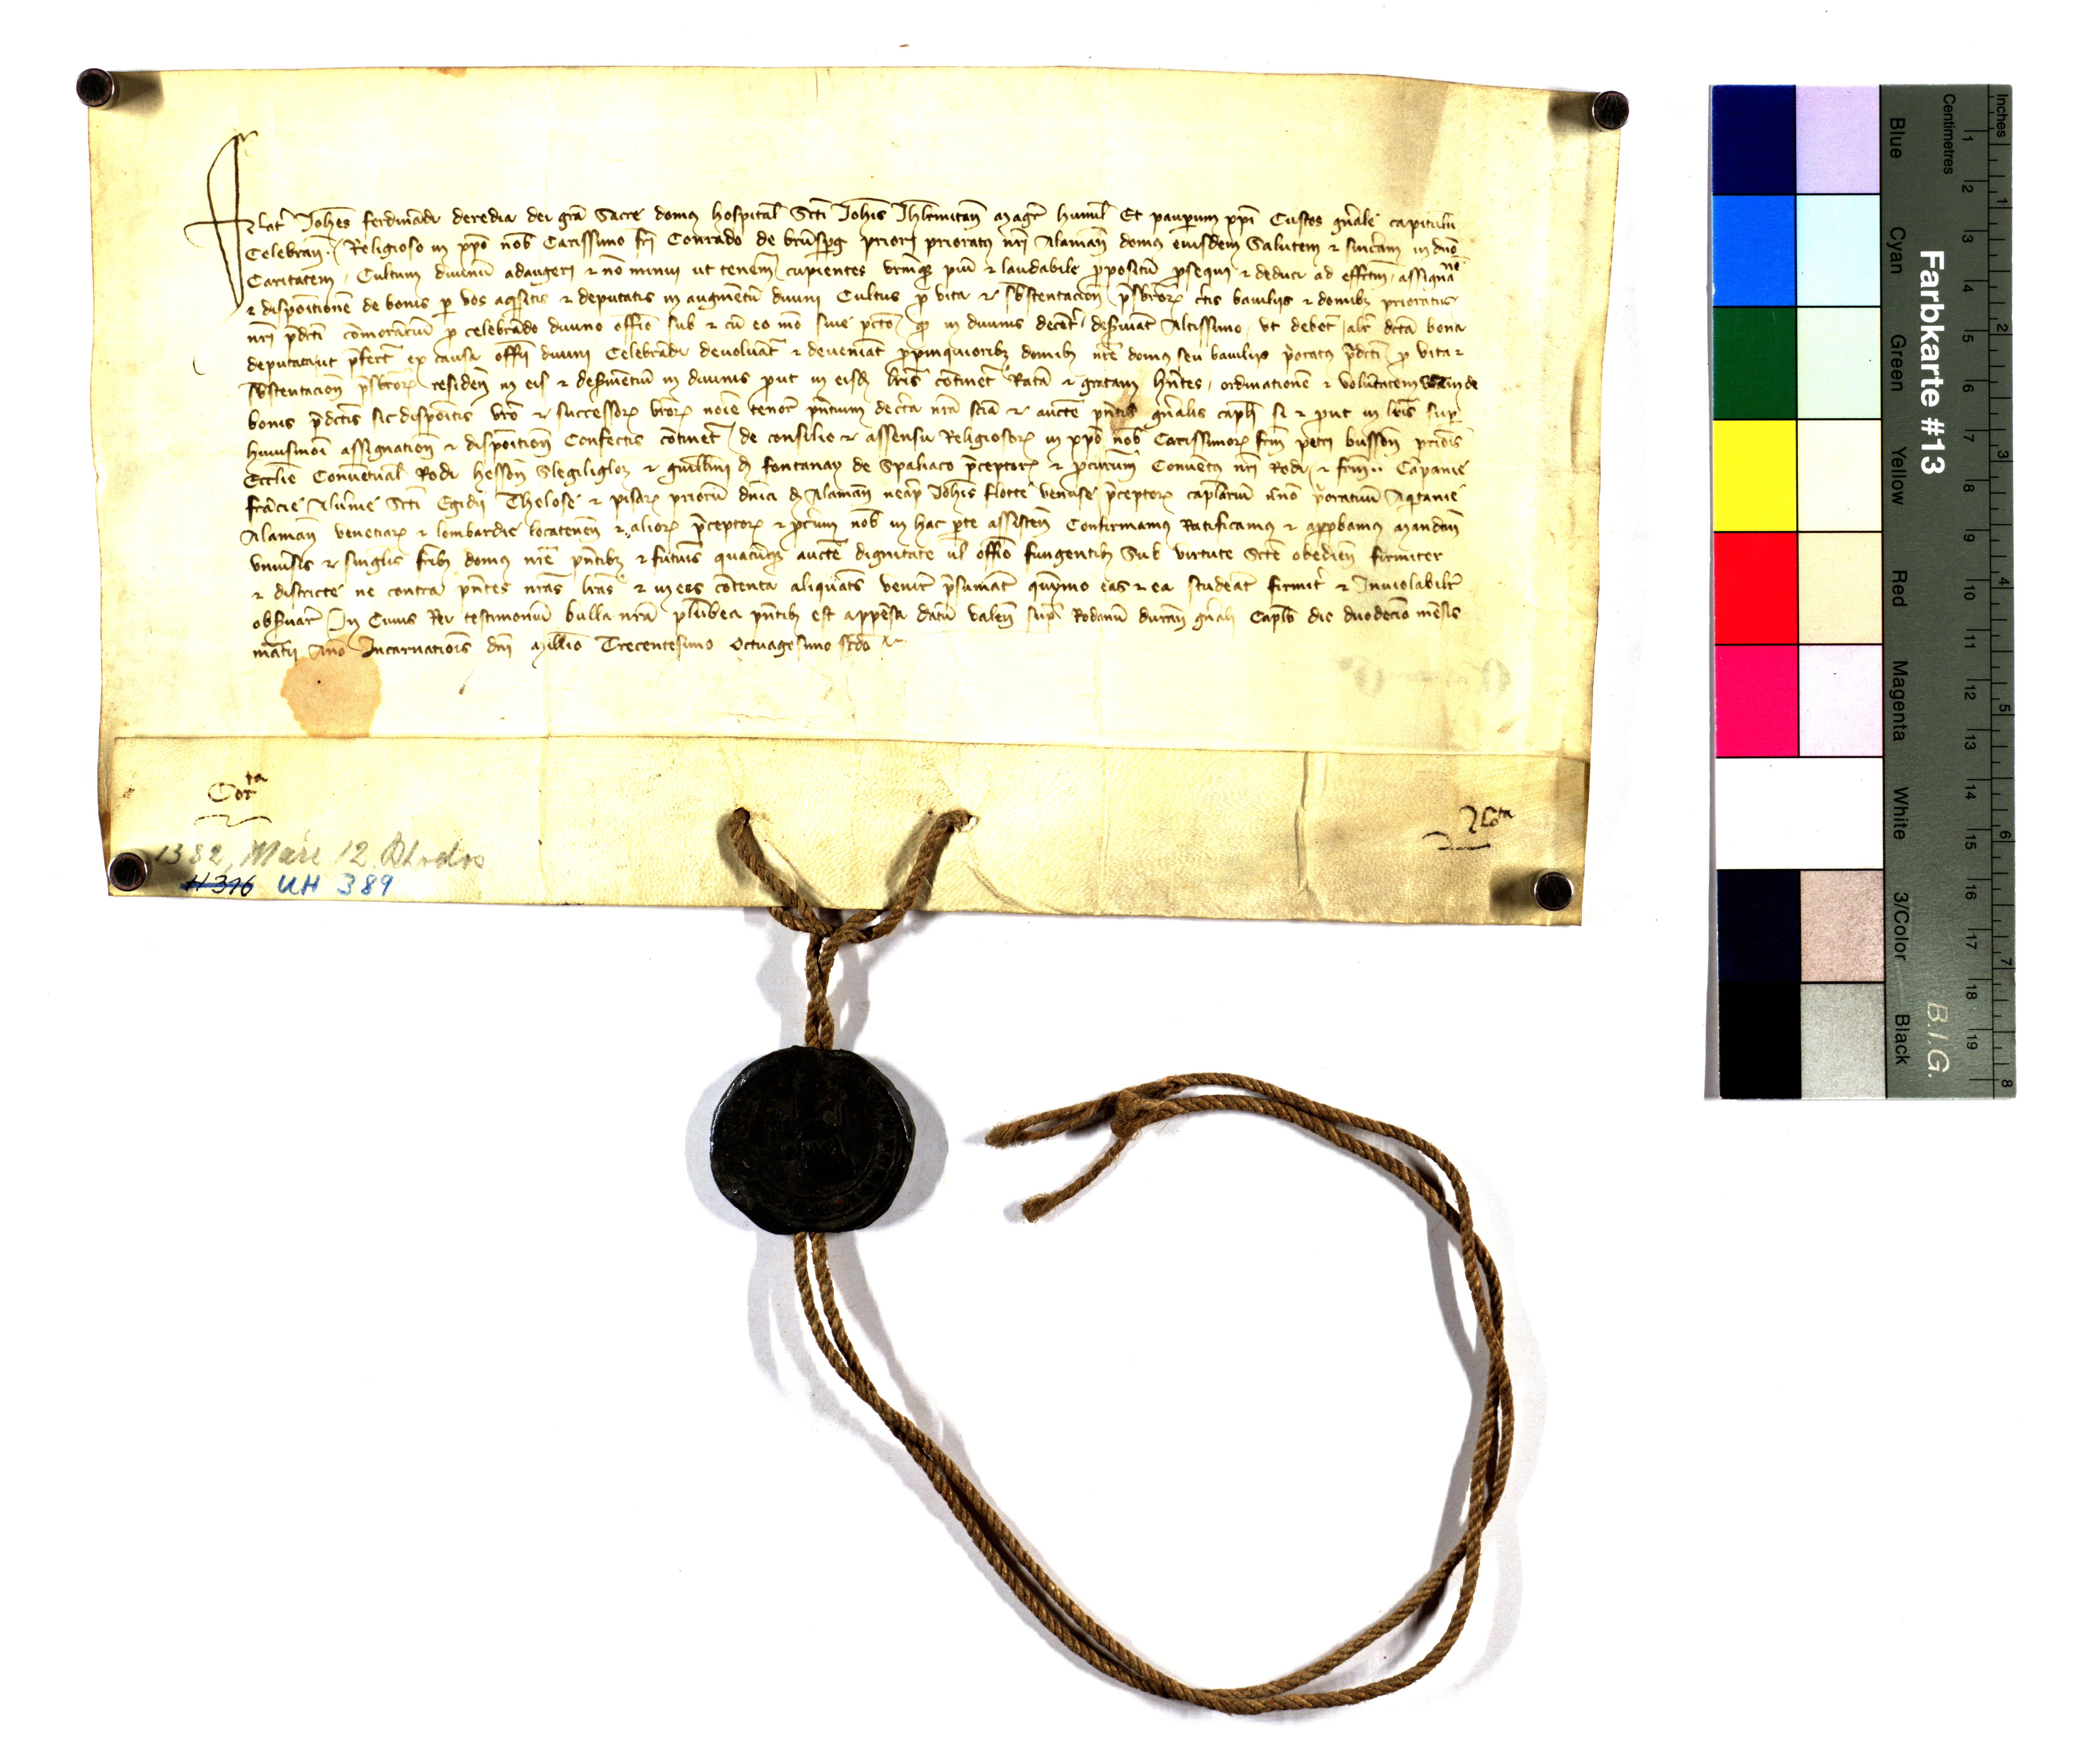 Frat Johes ferdinadi deredia dei gra Sacre domus hospital Scti Johis Jhrlmitan magr humil Et pauperum xpi Custos gnale capitulu
Celebran. Religioso in xpo nob Carissimo fri Conrado de brunsperg priori prioratus nri Alaman domus eiusdem Salutem et sinceram in dno
Caritatem. Cultum diuinu adaugeri et no minui ut tenem cupientes vrmque piu et laudabile propositu prosequi et deduci ad effectum assignane
et dispoitione de bonis per vos aqisitis et deputatis in augmentu diuini Cultus pro vita et sbstentacion presbroru certis bailiis et domibus prioratus
nri predicti comoranciu pro celebrando diuino offio sub et cu eo mo siue pacto quod in diuinis decent deseruiat Altissimo ut debet alr dcta bona
deputata ut prefert ex causa offii diuini Celebrandi deuoluat et deueniat propinquioribus domibus nre domus seu bailiis prioratus predicti pro vita et
sbstentacion presbroru residen in eis et deseruientiu in diuinis prout in eisdem lris continet Rata et gratam hntes ordinatione et voluntatem vram de
bonis predictis sic dispoitis vro et successoru vroru noie tenor pntium de certa nra scia et aucte pntis gnalis capli si et prout in lris super
huiusmoi assignation et dispoition Confectis continet de consilio et assensu Religiosoru in xpo nob Carissimoru frum petri buisson prioris
Ecclie Conuentual Rodi hesson Slegiligloz et guillmi de fontanay de Spaliaco preceptoru et procuratum Conuentus nri Rodi et frum .. Capanie
francie Aluernie Scti Egidii Tholose et pisaru prioru dnici de Alaman neap Johis flotte venuse preceptoru caplariu prioratuum Aqtanie
Alaman venetiaru et lombardie locatenen et alioru preceptoru et procerum nob in hac parte assisten Confirmamus Ratificamus et approbamus mandan
vniuersis et singulis fribus domus nre pntibus et futuris quacunque aucte dignitate ul offio fungentibus Sub virtute Scte obedien firmiter
et districte ne contra pntes nras lras et in eis contenta aliquatenus venire presumat quynimo eas et ea studeat firmit et Inuiolabiliter
obseruare In Cuius Rei testimoniu bulla nra plumbea pntibus est appensa datu valen supra Rodanu duran gnali Caplo die duodecio mensis
marcii Ano Incarnatiois dni Millio Trecentesimo Octuagesimo scdo
Corta
Rta
1382, März 12. Rhodos
H 376 UH 389
Farbkarte #13
B.I.G.
Inches 1 2 3 4 5 6 7 8
Centimetres 1 2 3 4 5 6 7 8 9 10 11 12 13 14 15 16 17 18 19
Blue Cyan Green Yellow Red Magenta White 3/Color Black